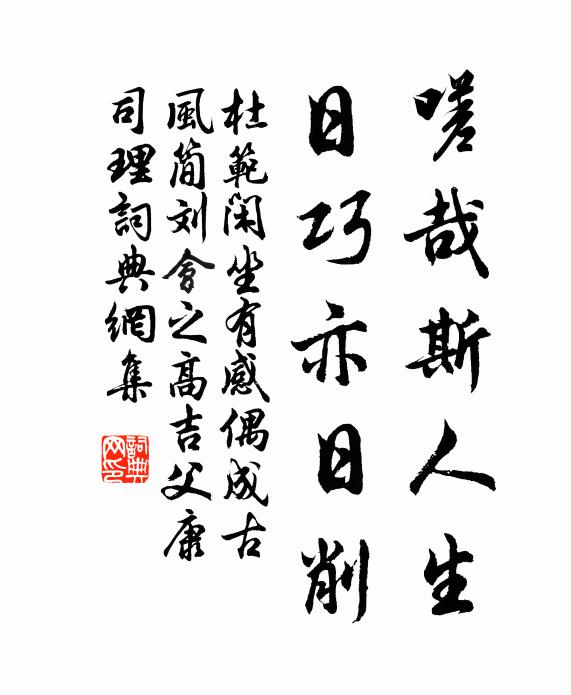 嗟哉斯人生
日巧亦日削
杜範閑坐有感偶成古
風简刘會之高吉父康
司理詞典網集
詞典网印